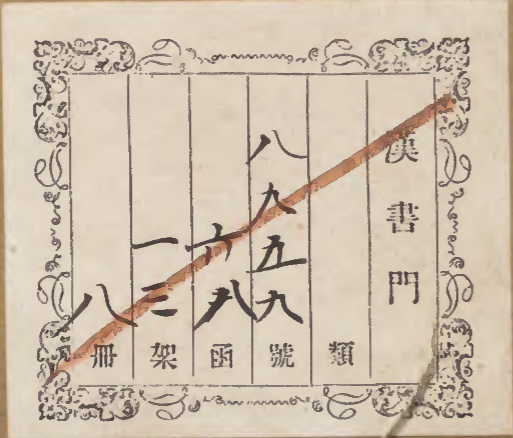 漢書門
類
八九五九號
六八函
一三架
八冊